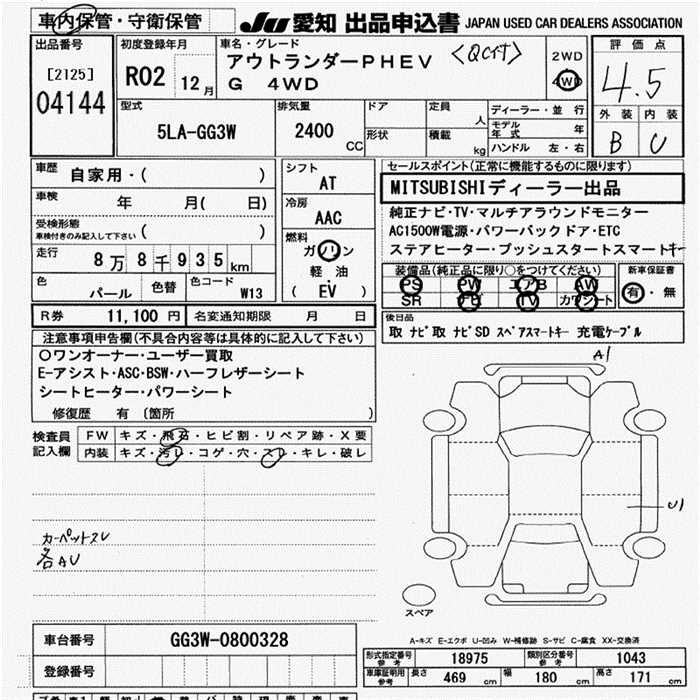 車内保管・守衛保管 JU 愛知 出品申込書 JAPAN USED CAR DEALERS ASSOCIATION
出品番号
[2125]
04144
初度登録年月
R02 12月
車名・グレード
アウトランダーPHEV
G 4WD
2WD
4WD
評価点
4.5
外装 内装
B C
型式
5LA-GG3W
排気量
2400 CC
ドア
形状
定員 人
積載 kg
ディーラー・並行
モデル年式 年
ハンドル 左・右
車歴 自家用・( )
車検 年 月( 日)
受検形態
車検付きのみ記入して下さい ( )
走行 8万8千935km
色 パール 色替 色コード W13
シフト
AT
冷房
AAC
燃料
ガソリン
軽油
( EV )
セールスポイント(正常に機能するものに限ります)
MITSUBISHIディーラー出品
純正ナビ・TV・マルチアラウンドモニター
AC1500W電源・パワーバックドア・ETC
ステアヒーター・プッシュスタートスマートキー
装備品(純正品に限り○をつけてください)
PS PW エアB AW
SR ナビ TV カワシート
新車保証書
有・無
R券 11,100 円 名変通知期限 月 日
後日品
取 ナビ取 ナビSD スペアスマートキー 充電ケーブル
注意事項申告欄(不具合内容等は具体的に記入して下さい)
○ワンオーナー・ユーザー買取
E-アシスト・ASC・BSW・ハーフレザーシート
シートヒーター・パワーシート
修復歴 有 〔箇所 〕
検査員記入欄
FW キズ・飛石・ヒビ割・リペア跡・X要
内装 キズ・汚レ・コゲ・穴・スレ・キレ・破レ
カーペットスレ
各AU
A1
U1
スペア
A-キズ E-エクボ U-凹み W-補修跡 S-サビ C-腐食 XX-交換済
車台番号 GG3W-0800328
登録番号
形式指定番号 参考 18975 類別区分番号 参考 1043
車庫証明用 参考 長さ 469 cm 幅 180 cm 高さ 171 cm